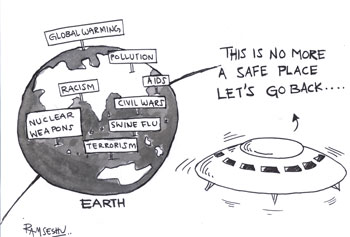 GLOBAL WARMING
POLLUTION
AIDS
RACISM
CIVIL WARS
NUCLEAR
WEAPONS
SWINE FLU
TERRORISM
EARTH
THIS IS NO MORE
A SAFE PLACE
LET'S GO BACK....
RAMSESHU..